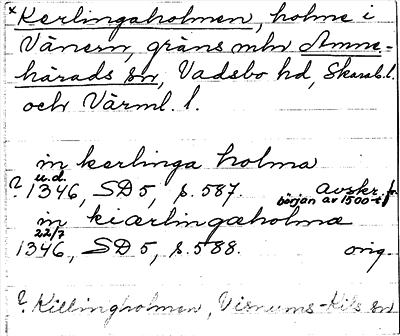 × Kerlingaholmen, holme i
Vänern, gräns mln Amne-
härads sn, Vadsbo hd, Skarab. l.
och Värml. l.
in kerlinga holma
u.d.
? 1346, SD 5, s. 587. avskr. fr
början av 1500-t
in kiærlingæholmæ
22/7
1346, SD 5, s. 588. orig.
?. Killingholmen, Visnums-Kils sn